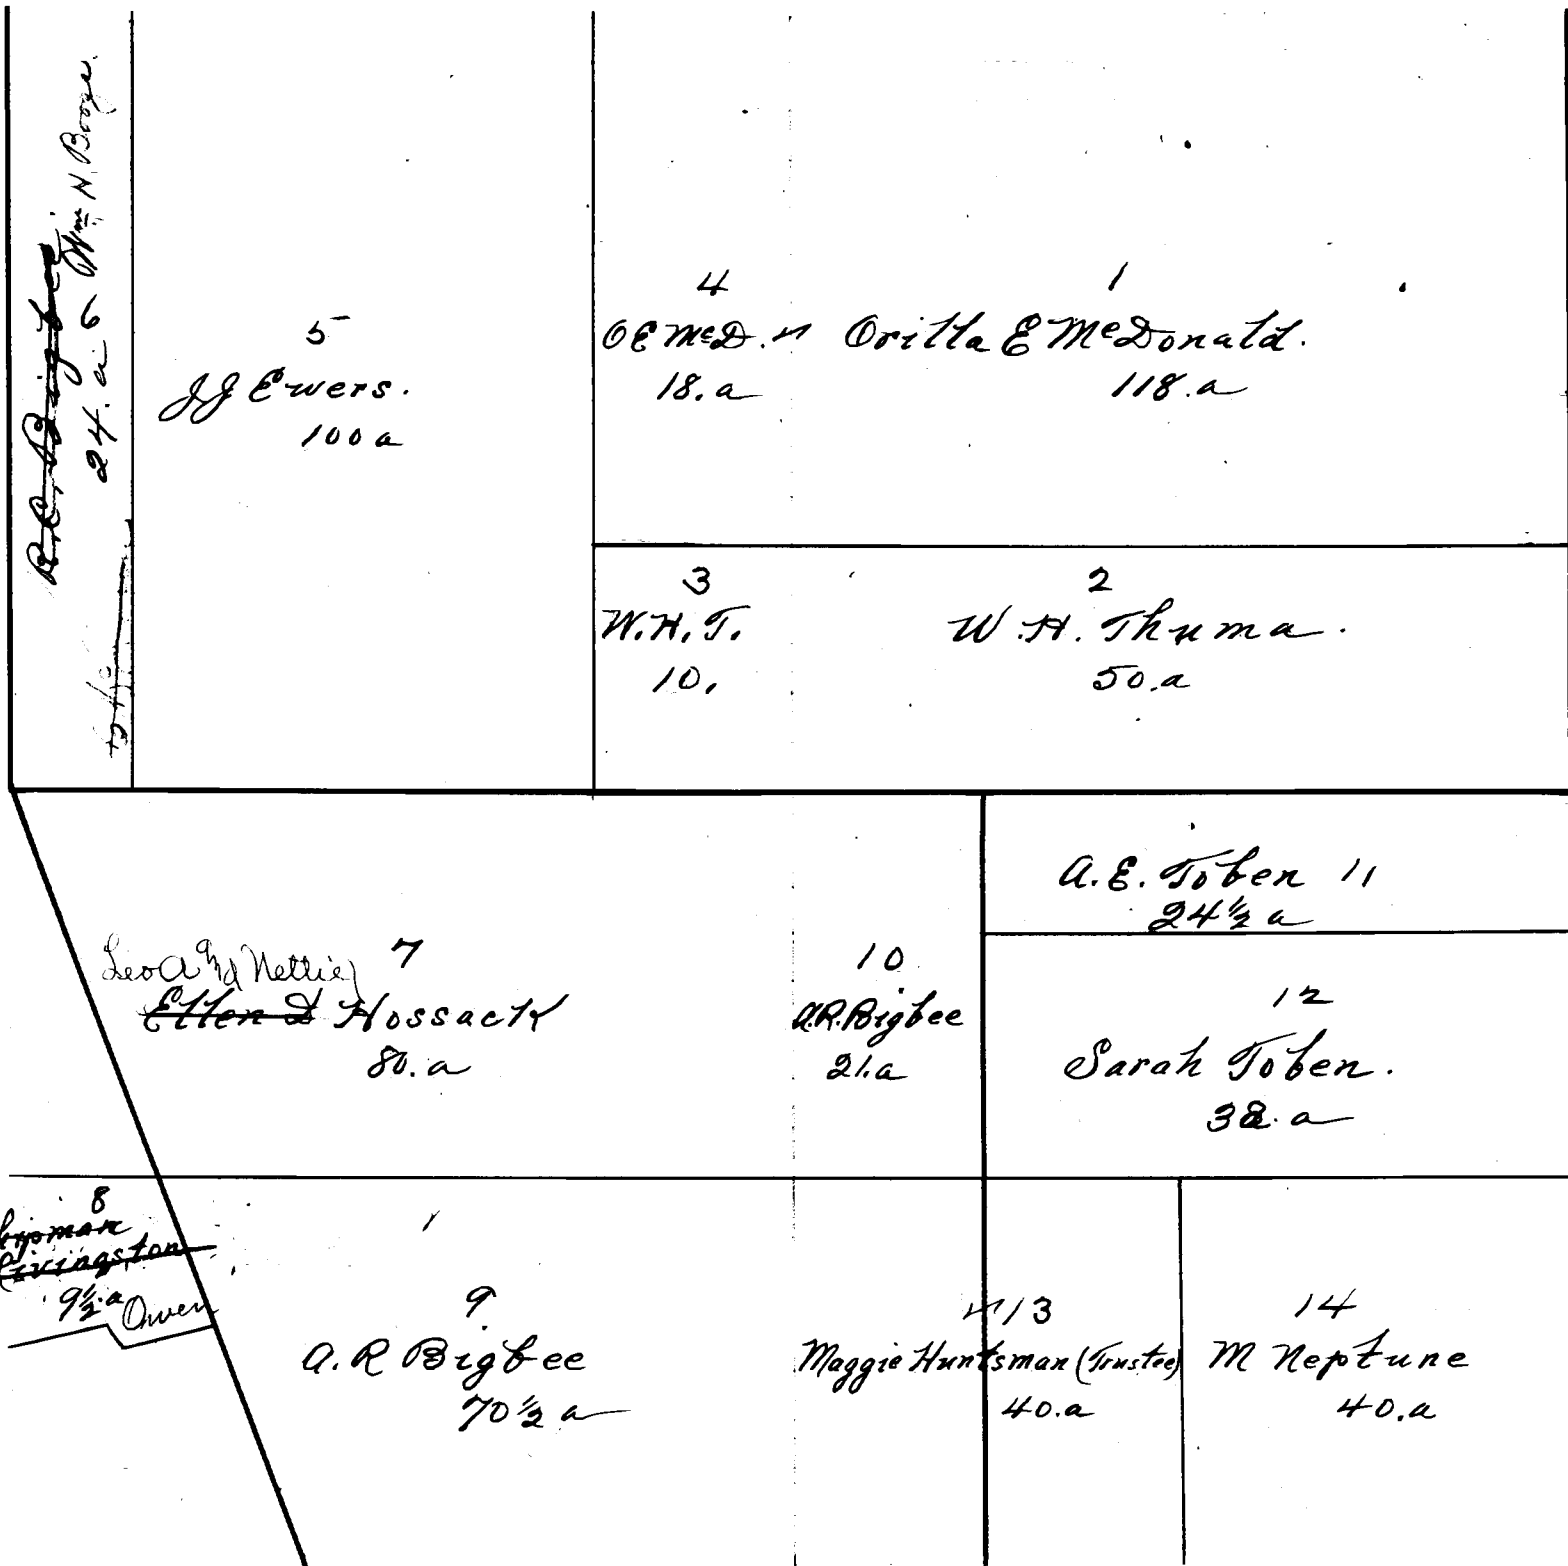 R.C. Bigbee
24. a 6 Wm H. Booze.
5
JJ Ewers.
100 a
4
O E McD.
18. a
1
Orilla E McDonald.
118. a
3
W.H.T.
10.
2
W.H. Thuma.
50. a
7
Leo A and Nettie
Ellen D Hossack
80. a
10
A.R. Bigbee
21. a
A.E. Toben 11
24½ a
12
Sarah Toben.
38. a
8
Livingston
9½ a Owen
9
A. R Bigbee
70½ a
13
Maggie Huntsman (Trustee)
40. a
14
M Neptune
40. a